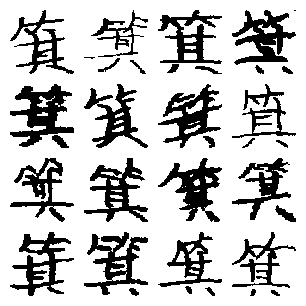 箕箕箕箕
箕箕箕箕
箕箕箕箕
箕箕箕箕